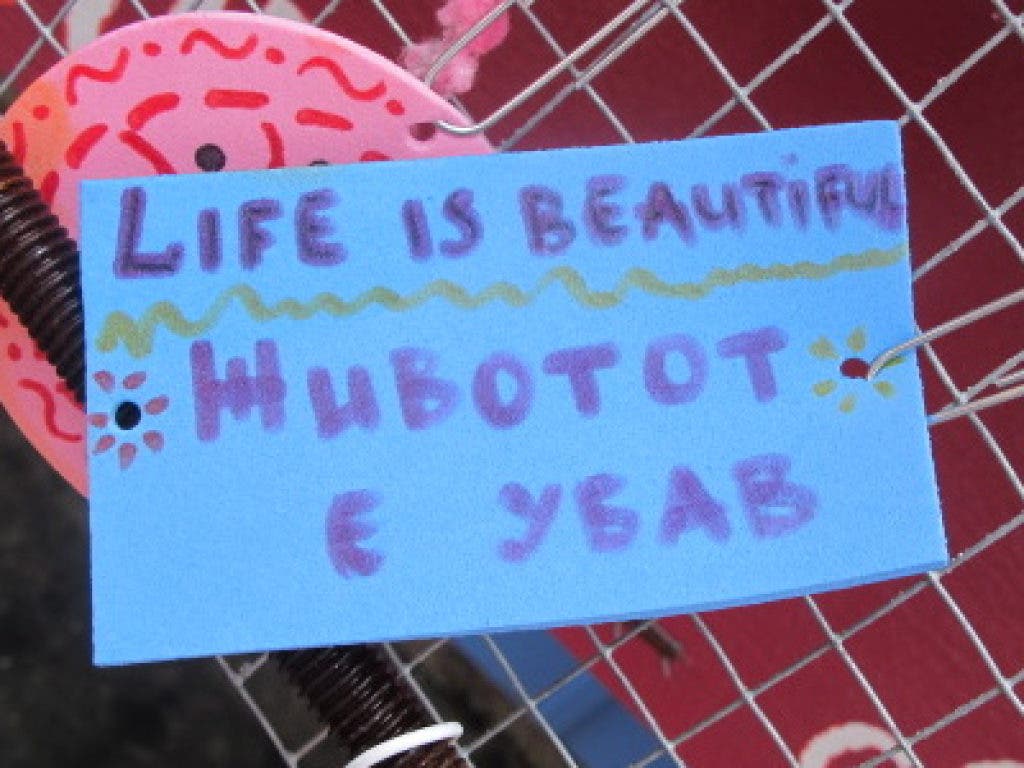 LIFE IS BEAUTIFUL
ЖИВОТОТ
Е УБАВ